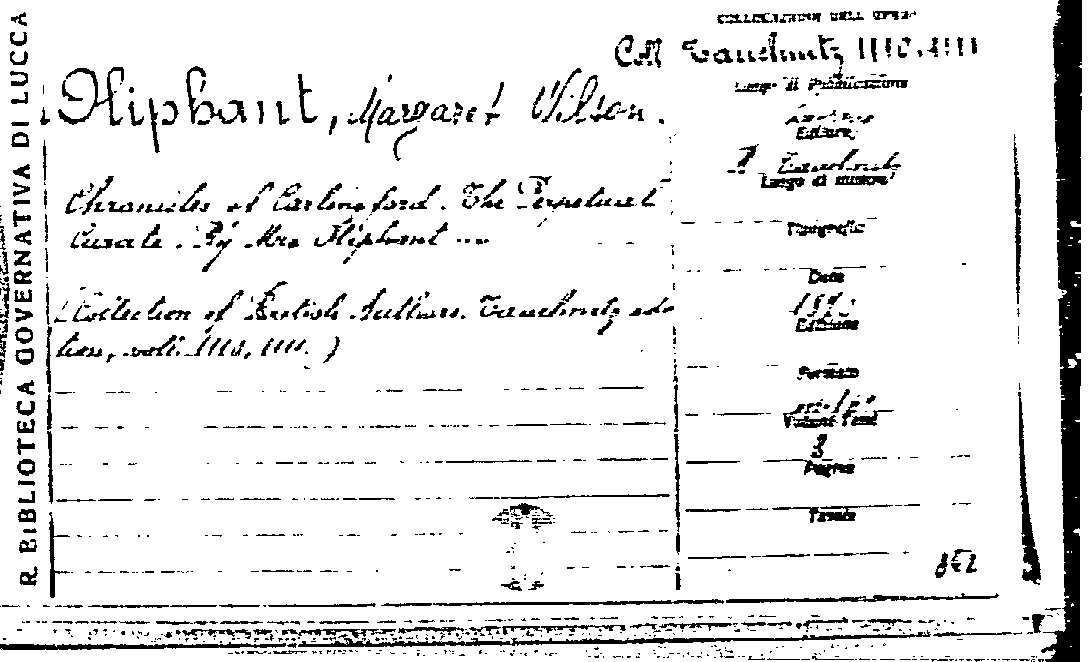 R. BIBLIOTECA GOVERNATIVA DI LUCCA
COLLOCAZIONE DELL' OPERA
C.M. Tauchnitz 1110.1111
Oliphant, Margaret Wilson.
Luogo di Pubblicazione
Editore
B. Tauchnitz
Luogo di stampa
Chronicles of Carlingford. The Perpetual
Curate. By Mrs Oliphant ...
Tipografia
Data
(Collection of British Authors. Tauchnitz edi-
tion, voll. 1110, 1111.)
Edizione
Formato
Volumi Tomi
Pagine
Tavole